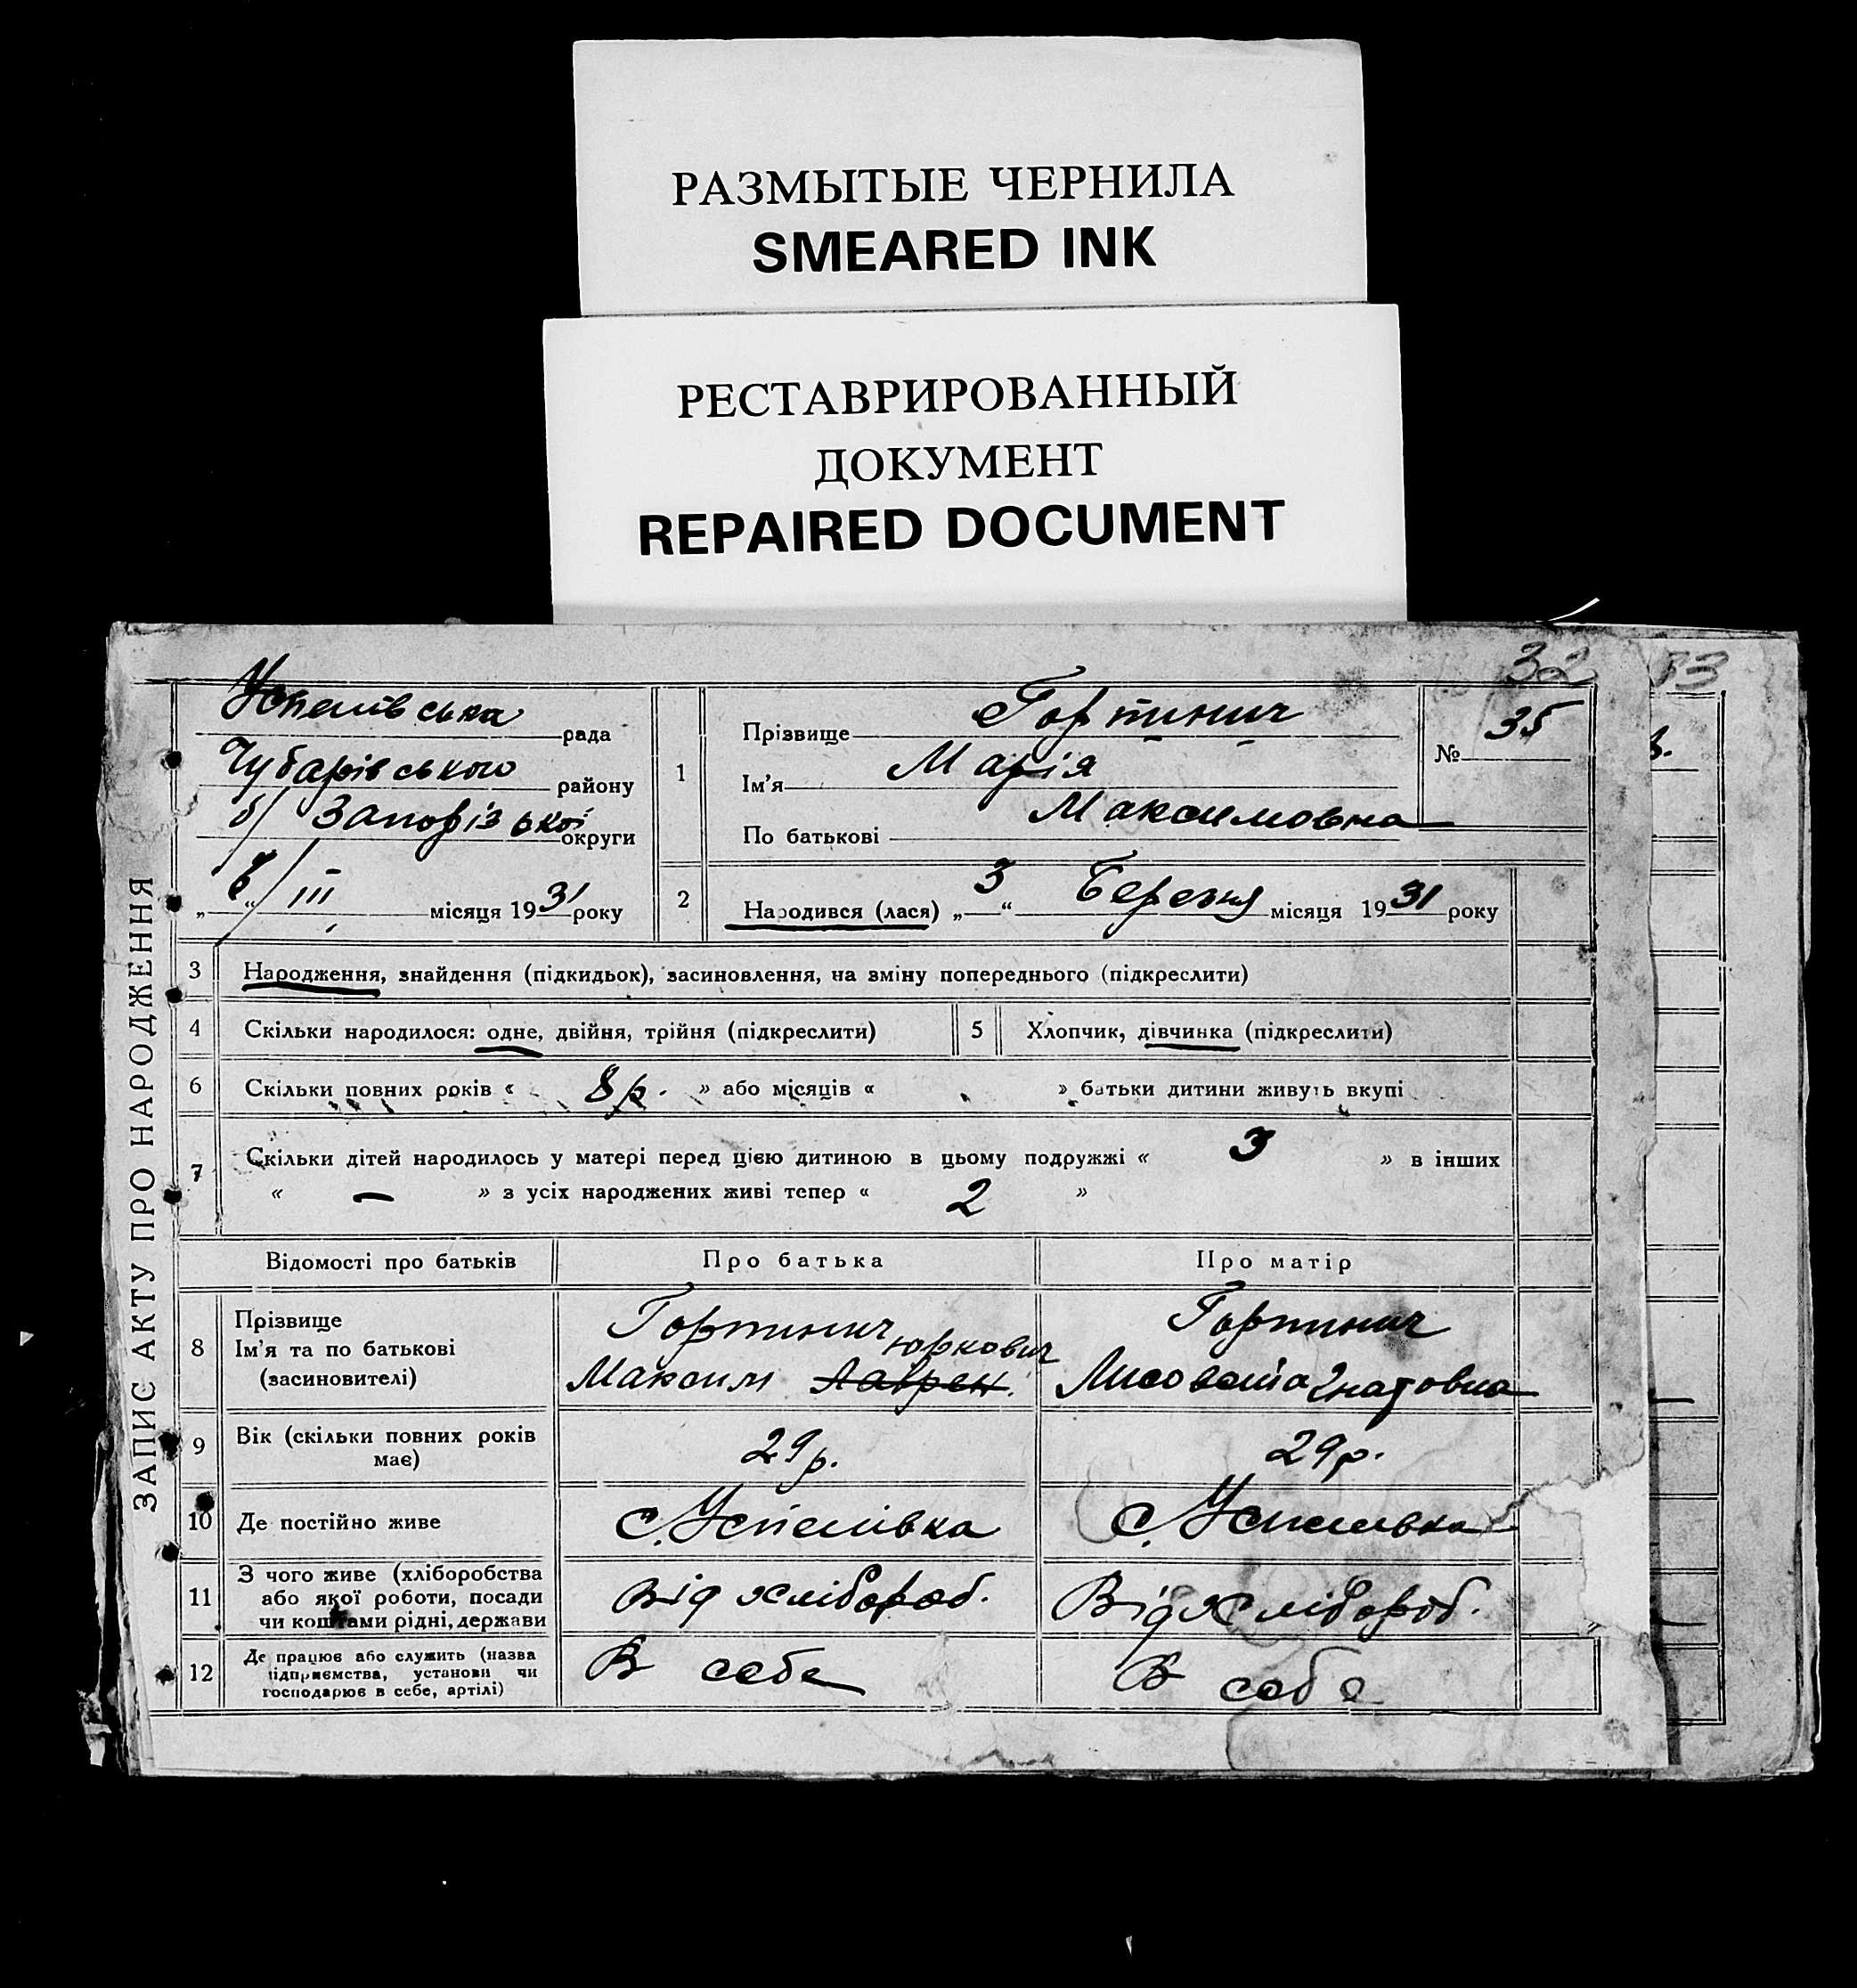 РАЗМЫТЫЕ ЧЕРНИЛА
SMEARED INK
РЕСТАВРИРОВАННЫЙ
ДОКУМЕНТ
REPAIRED DOCUMENT
32
33
ЗАПИС АКТУ ПРО НАРОДЖЕННЯ
Успенівська рада
Чубарівського району
б/ Запорізької округи
„6“ III місяця 1931 року
1
Прізвище Гортинич
Ім'я Марія
По батькові Максимовна
№ 35
2
Народився (лася) „3“ Березня місяця 1931 року
3 Народження, знайдення (підкидьок), засиновлення, на вміну попереднього (підкреслити)
4 Скільки народилося: одне, двійня, трійня (підкреслити)
5 Хлопчик, дівчинка (підкреслити)
6 Скільки повних років « 8 р. » або місяців « » батьки дитини живуть вкупі
7 Скільки дітей народилось у матері перед цією дитиною в цьому подружжі « 3 » в інших
« — » з усіх народжених живі тепер « 2 »
Відомості про батьків Про батька Про матір
8 Прізвище
Ім'я та по батькові
(засиновителі)
Гортинич Юркович
Максим Лаврен.
Гортинич
Лисовета Гнатовна
9 Вік (скільки повних років
має)
29 р. 29 р.
10 Де постійно живе с. Успенівка с. Успенівка
11 З чого живе (хліборобства
або якої роботи, посади
чи коштами рідні, держави
Від хлібороб. Від хлібороб.
12 Де працює або служить (назва
підприємства, установи чи
господарює в себе, артілі)
В себе В себе